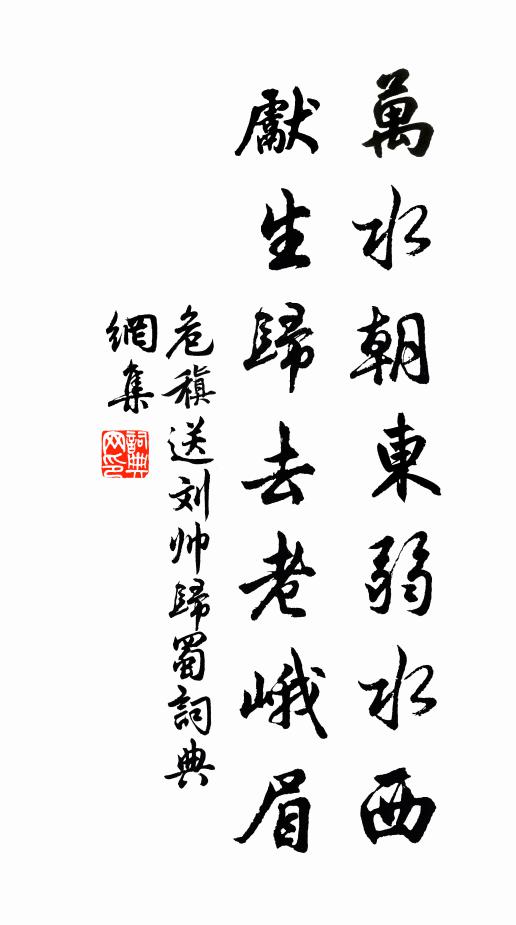 萬水朝東弱水西
獻生歸去老峨眉
危稹送刘帅歸蜀詞典
網集
詞典网印